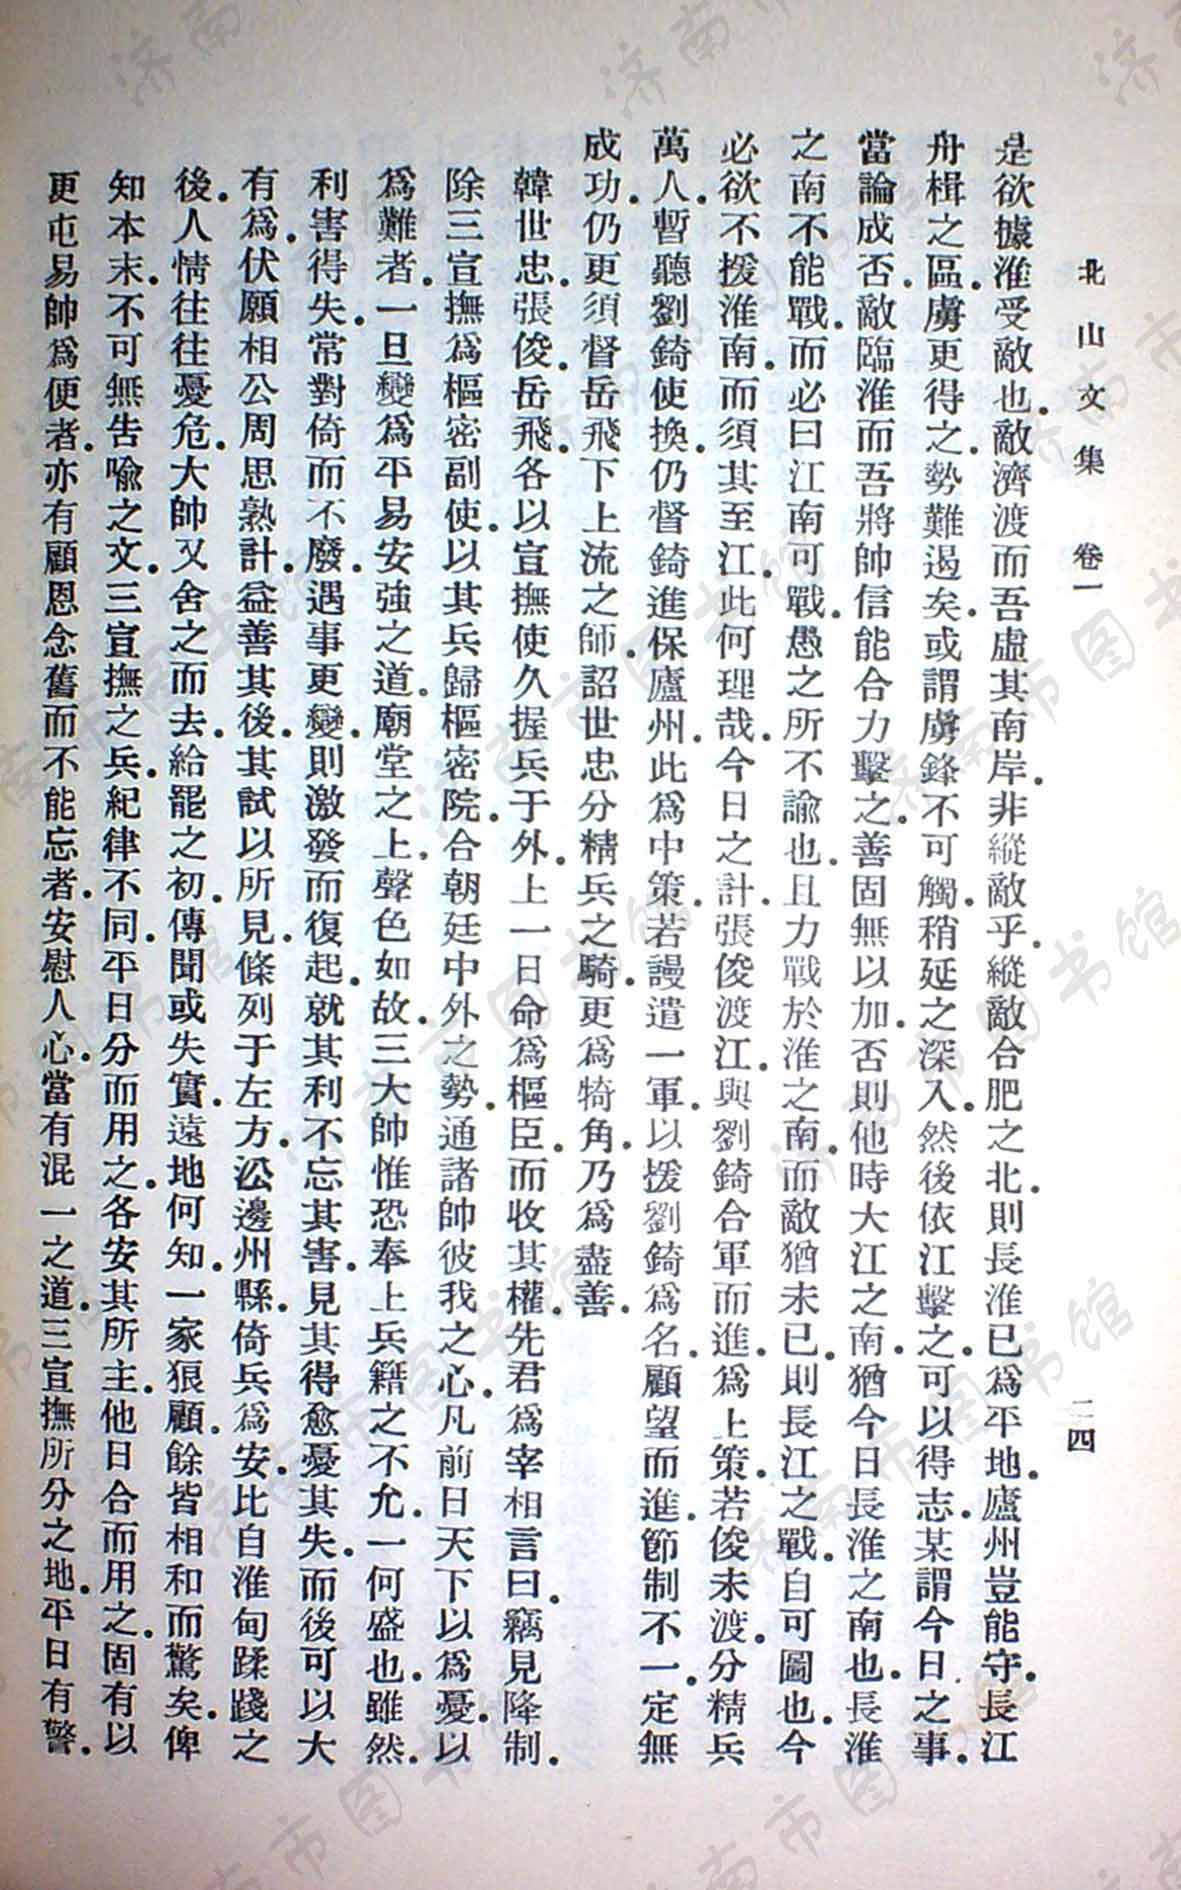 北山文集　卷一　二四
是欲據淮受敵也。敵濟渡而吾虛其南岸。非縱敵乎。縱敵合肥之北。則長淮已爲平地。廬州豈能守。長江
舟楫之區。虜更得之。勢難遏矣。或謂虜鋒不可觸。稍延之深入。然後依江擊之。可以得志。某謂今日之事。
當論成否。敵臨淮而吾將帥信能合力擊之。善固無以加。否則他時大江之南。猶今日長淮之南也。長淮
之南不能戰。而必曰江南可戰。愚之所不諭也。且力戰於淮之南。而敵猶未已。則長江之戰。自可圖也。今
必欲不援淮南。而須其至江。此何理哉。今日之計。張俊渡江。與劉錡合軍而進。爲上策。若俊未渡。分精兵
萬人。暫聽劉錡使換。仍督錡進保廬州。此爲中策。若謾遣一軍。以援劉錡爲名。顧望而進。節制不一。定無
成功。仍更須督岳飛下上流之師。詔世忠分精兵之騎。更爲犄角。乃爲盡善。
韓世忠。張俊。岳飛。各以宣撫使久握兵于外。上一日命爲樞臣。而收其權。先君爲宰相言曰。竊見降制。
除三宣撫爲樞密副使。以其兵歸樞密院。合朝廷中外之勢。通諸帥彼我之心。凡前日天下以爲憂。以
爲難者。一旦變爲平易安強之道。廟堂之上。聲色如故。三大帥惟恐奉上兵籍之不允。一何盛也。雖然。
利害得失。常對倚而不廢。遇事更變。則激發而復起。就其利不忘其害。見其得愈憂其失。而後可以大
有爲。伏願相公周思熟計。益善其後。其試以所見。條列于左方。沿邊州縣。倚兵爲安。比自淮甸蹂踐之
後。人情往往憂危。大帥又舍之而去。給罷之初。傳聞或失實。遠地何知。一家狼顧。餘皆相和而驚矣。俾
知本末。不可無告喻之文。三宣撫之兵。紀律不同。平日分而用之。各安其所主。他日合而用之。固有以
更屯易帥爲便者。亦有顧恩念舊而不能忘者。安慰人心。當有混一之道。三宣撫所分之地。平日有警。
济南市图书馆